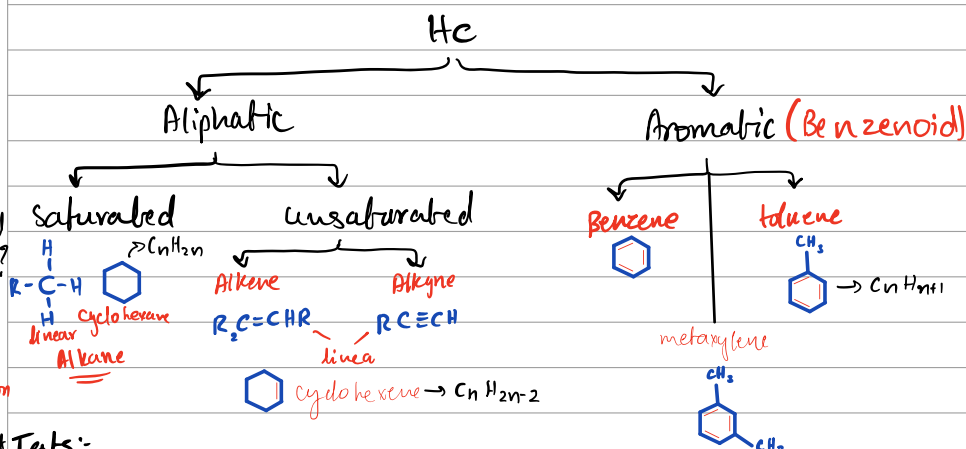 HC
Aliphatic
Aromatic (Benzenoid)
saturated
unsaturated
Benzene
toluene
CnH2n
H
R-C-H
H
linear
Cyclohexane
Alkane
Alkene
Alkyne
R2C=CHR
RC≡CH
linea
cyclohexene → CnH2n-2
CH3
→ CnHn+1
metaxylene
CH3
Tests:-